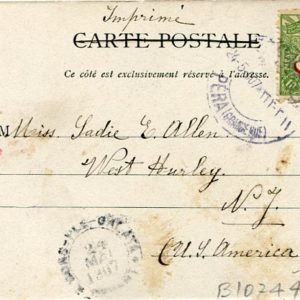 Imprimé
CARTE POSTALE
Ce côté est exclusivement réservé à l'adresse.
PERA (GRANDE RUE)
M Miss. Sadie E. Allen.
West Hurley.
N. Y.
(U. S. America
24
MAI
B10244